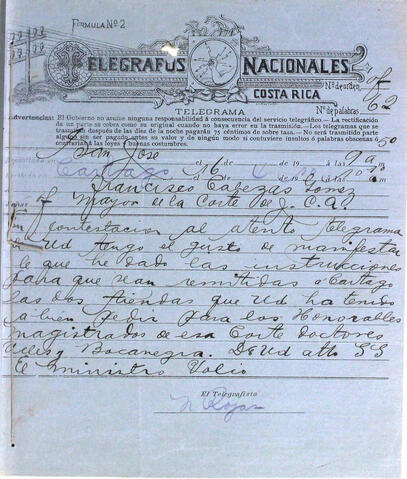 FÓRMULA Nº 2
TELEGRAFOS NACIONALES
COSTA RICA
Nº de orden
TELEGRAMA
Nº de palabras 62
Advertencias: El Gobierno no asume ninguna responsabilidad á consecuencia del servicio telegráfico.—La rectificación
de un parte se cobra como su original cuando no haya error en la trasmisión.—Los telegramas que se
trasmitan después de las diez de la noche pagarán 75 céntimos de sobre tasa.—No será trasmitido parte
alguno sin ser pagado antes su valor y de ningún modo si contuviere insultos ó palabras obscenas ó
contrarias á las leyes y buenas costumbres.
San José 9 a 50
Cartago el 16 de 19 á las
Francisco Cabezas Gomez
of Mayor de la Corte de J. C. A.
En contestación al atento telegrama
de Ud tengo el gusto de manifestar
le que he dado las instrucciones
para que sean remitidas a Cartago
las dos tiendas que Ud ha tenido
a bien pedir para los Honorables
magistrados de esa Corte doctores
Ucles y Bocanegra. De Ud atto SS
El ministro Volio
El Telegrafista
N Rojas